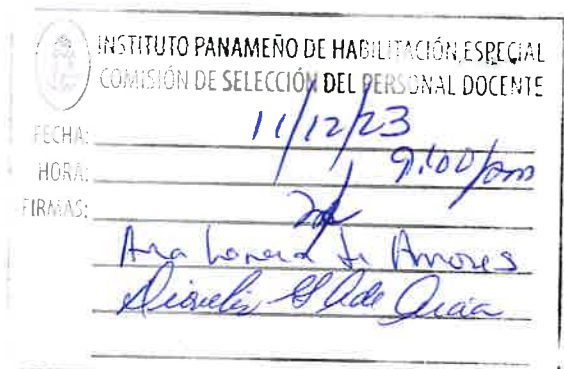 INSTITUTO PANAMEÑO DE HABILITACIÓN ESPECIAL
COMISIÓN DE SELECCIÓN DEL PERSONAL DOCENTE
FECHA: 11/12/23
HORA: 9:00/am
FIRMAS:
Ana Lorena de Amores